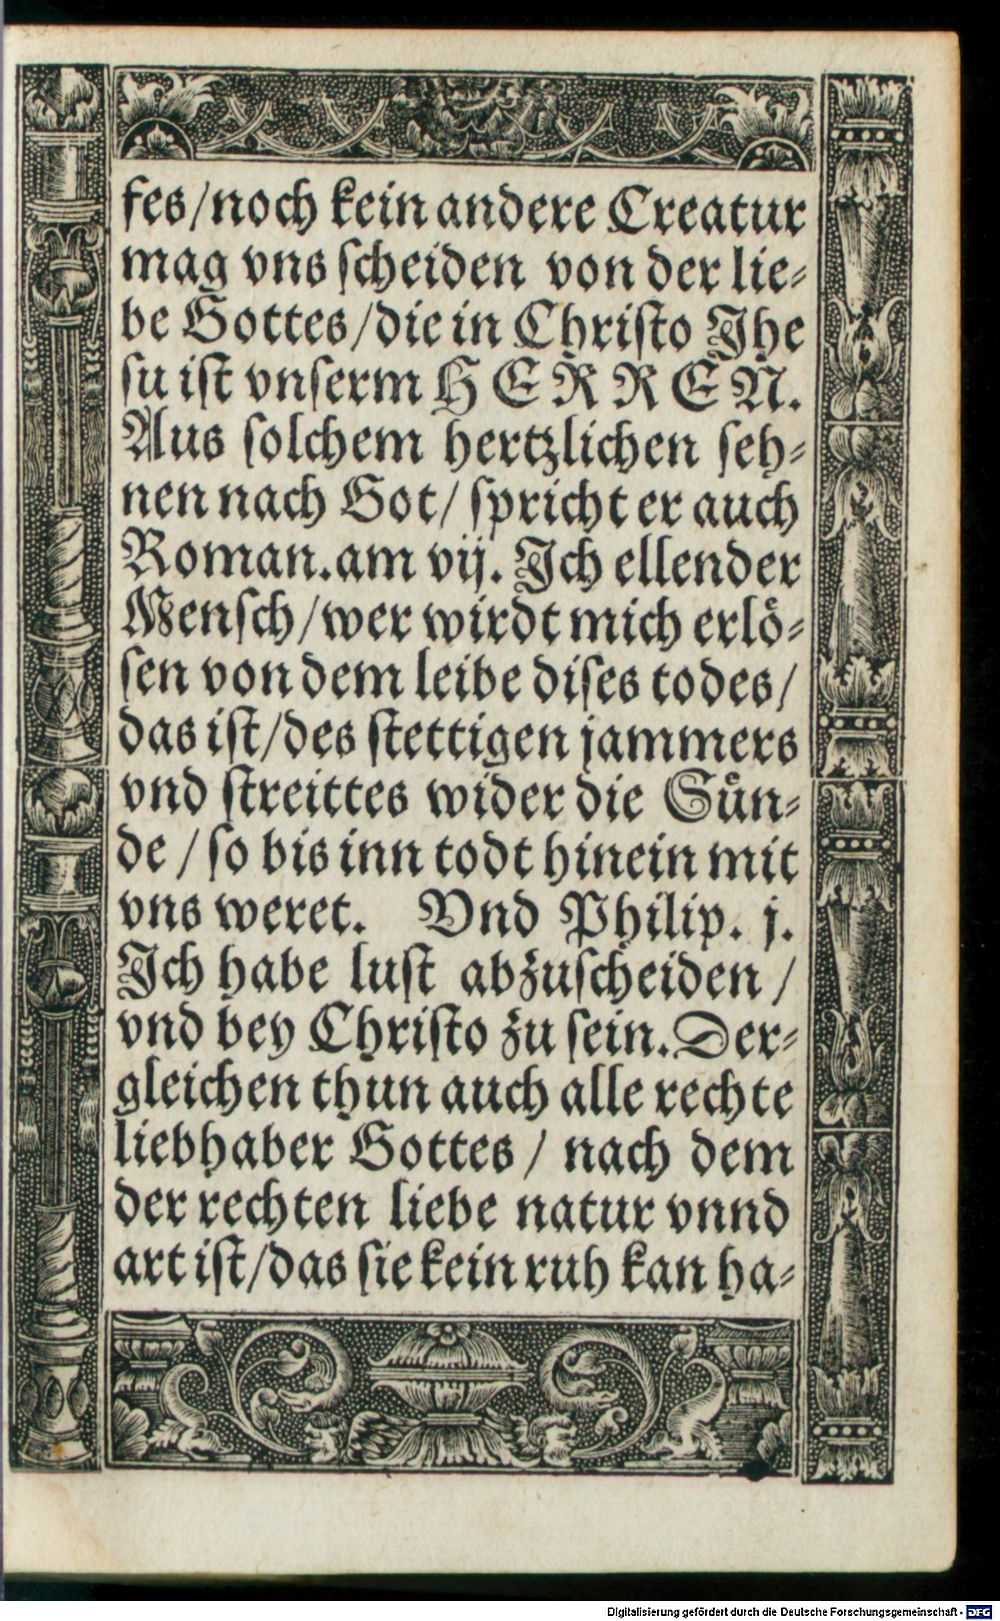 fes/noch kein andere Creatur
mag vns scheiden von der lie⸗
be Gottes/die in Christo Jhe
su ist vnserm HERREN.
Aus solchem hertzlichen seh⸗
nen nach Got/ spricht er auch
Roman.am vij. Jch ellender
Mensch/wer wirdt mich erlö⸗
sen von dem leibe dises todes/
das ist/des stettigen jammers
vnd streittes wider die Sün⸗
de /so bis inn todt hinein mit
vns weret. Vnd Philip. j.
Jch habe lust abzuscheiden /
vnd bey Christo zu sein.Der⸗
gleichen thun auch alle rechte
liebhaber Gottes/ nach dem
der rechten liebe natur vnnd
art ist/das sie kein ruh kan ha⸗
Digitalisierung gefördert durch die Deutsche Forschungsgemeinschaft - DFG